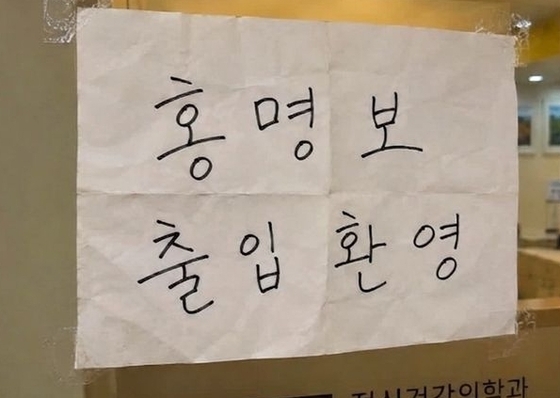 홍명보
출입 환영
정신건강의학과